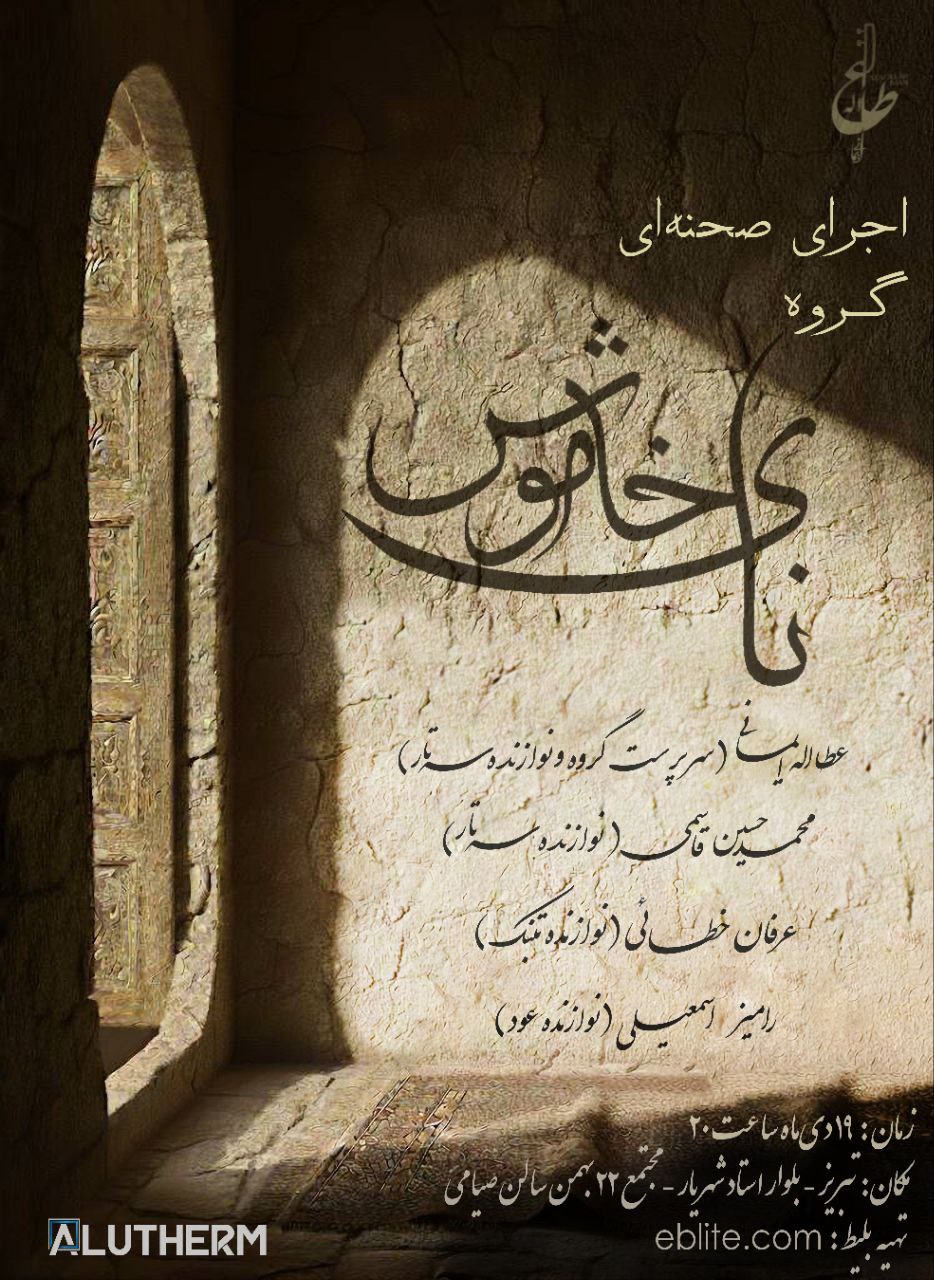 اجرای صحنه‌ای
گروه
نای خاموش
عطااله ایمانی (سرپرست گروه و نوازنده سه‌تار)
محمدحسین قاسمی (نوازنده سه‌تار)
عرفان خطائی (نوازنده تنبک)
رامیز اسمعیلی (نوازنده عود)
زمان: ۱۹ دی ماه ساعت ۲۰
مکان: تبریز - بلوار استاد شهریار - مجتمع ۲۲ بهمن سالن صیامی
تهیه بلیط: eblite.com
ALUTHERM